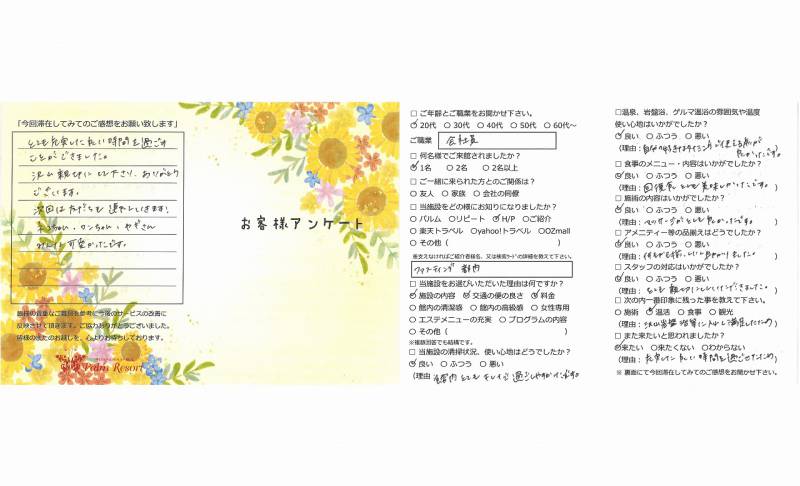 「今回滞在してみてのご感想をお願い致します」
とても充実した良い時間を過ごす
ことができました。
沢山親切にして下さり、ありがとう
ございます。
次回は友だちも連れていきます!
ネコちゃん、ワンちゃん、ヤギさん
みんな可愛かったです。
皆様の貴重なご意見を参考に今後のサービスの改善に
反映させて頂きます。ご協力ありがとうございました。
皆様の次回のお越しを、心よりお待ちしております。
Palm Resort
お客様アンケート
□ ご年齢とご職業をお聞かせ下さい。
○20代 ○30代 ○40代 ○50代 ○60代~
ご職業 会社員
□ 何名様でご来館されましたか?
○1名 ○2名 ○2名以上
□ ご一緒に来られた方とのご関係は?
○友人 ○家族 ○会社の同僚
□ 当施設をどの様にお知りになりましたか?
○パルム ○リピート ○H/P ○ご紹介
○楽天トラベル ○yahoo!トラベル ○OZmall
○その他 ( )
※支えなければご紹介者様名、又は検索ワードの詳細を教えて下さい。
ファスティング 都内
□ 当施設をお選びいただいた理由は何ですか?
○施設の内容 ○交通の便の良さ ○料金
○館内の清潔感 ○館内の高級感 ○女性専用
○エステメニューの充実 ○プログラムの内容
○その他 ( )
※複数回答でも結構です。
□ 当施設の清掃状況、使い心地はどうでしたか?
○良い ○ふつう ○悪い
(理由 館内とてもキレイで過ごしやすかったです。
□温泉、岩盤浴、ゲルマ温浴の雰囲気や温度
使い心地はいかがでしたか?
○良い ○ふつう ○悪い
(理由: 自分の好きなタイミングで使える所が
良かったです。)
□ 食事のメニュー・内容はいかがでしたか?
○良い ○ふつう ○悪い
(理由: 回復食とても美味しかったです。)
□ 施術の内容はいかがでしたか?
○良い ○ふつう ○悪い
(理由: マッサージがとても良かったです。)
□ アメニティー等の品揃えはどうでしたか?
○良い ○ふつう ○悪い
(理由: )
□ スタッフの対応はいかがでしたか?
○良い ○ふつう ○悪い
(理由: とても親切にしていただきました。)
□ 次の内一番印象に残った事を教えて下さい。
○施術 ○温活 ○食事 ○観光
(理由: 沢山岩盤浴等に入れて満足したため)
□ また来たいと思われましたか?
○来たい ○来たくない ○わからない
(理由: 充実した良い時間を過ごせたため)
※ 裏面にて今回滞在してみてのご感想をお聞かせ下さい。